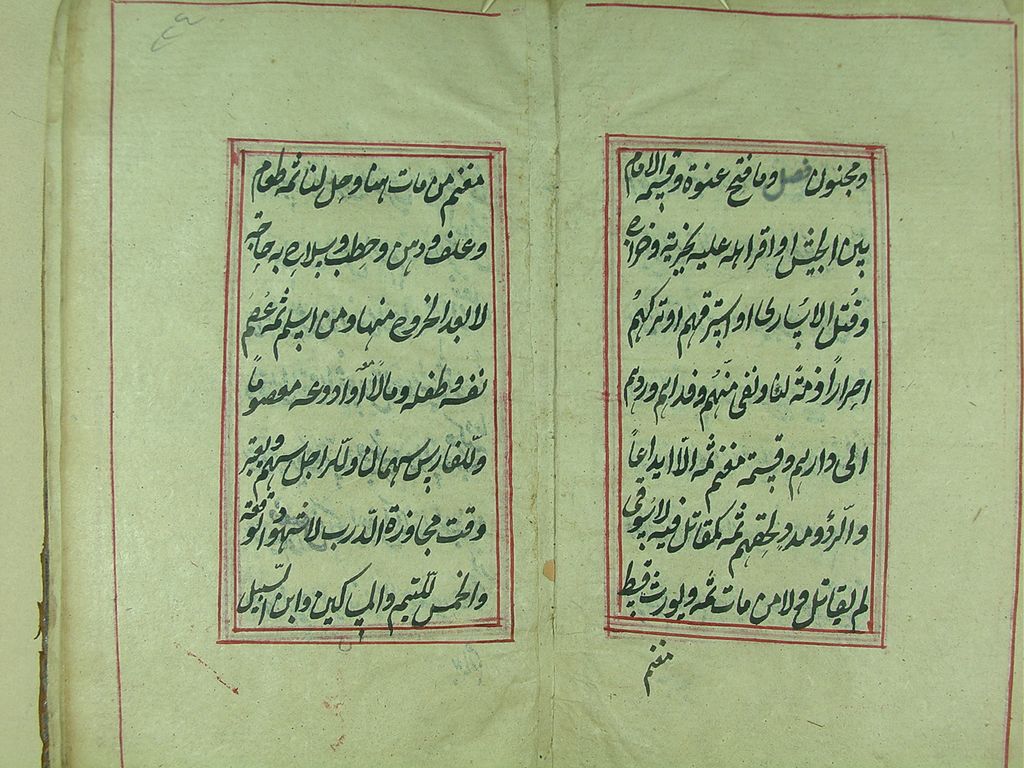 ومجنون فصل وما فتح عنوة وقسمه الامام
بين الجيش او اقر اهله عليه بجزية وخراج
وقتل الاسارى او استرقهم او تركهم
احرارا ذمة لنا ونفى منهم وفداهم وردهم
الى دارهم وقسمة مغنم ثمه الا ايداعا
والردؤ ومدد لحقهم ثمه كمقاتل فيه لا سوقى
لم يقاتل ولا من مات ثمه ويورث قسط
مغنم
مغنم من مات هنا وحل لنا ثمه طعام
وعلف ودهن وحطب وسلاح به حاجة
لا بعد الخروج منها ومن اسلم ثمه عصم
نفسه وطفله ومالا او اودعه معصوما
وللفارس سهمان وللراجل سهم ويعتبر
وقت مجاوزة الدرب لا شهود الوقعة
والخمس لليتيم والمساكين وابن السبيل